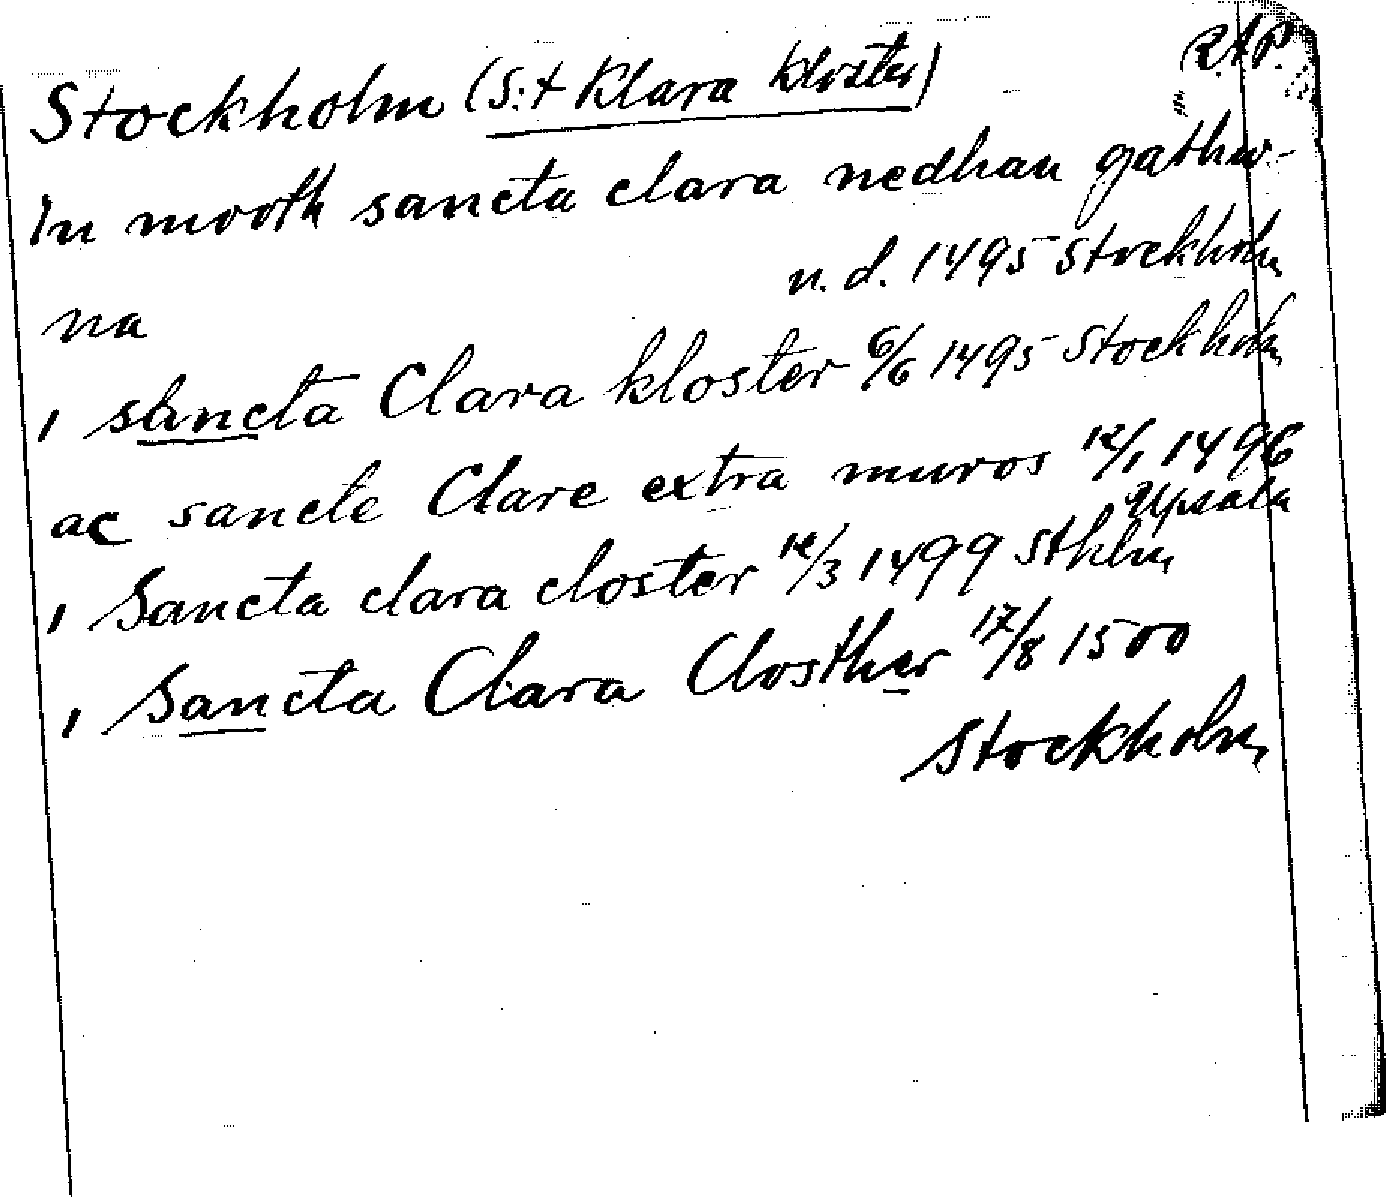 Stockholm (S:t Klara kloster) R.A.P.
in mooth sancta clara nedhan gathw-
na n. d. 1495 Stockholm
i sancta Clara kloster 6/6 1495 Stockholm
ac sancte Clare extra muros 12/1 1496
Upsala
i Sancta clara closter 12/3 1499 Sthlm
i Sancta Clara Closther 17/8 1500
Stockholm